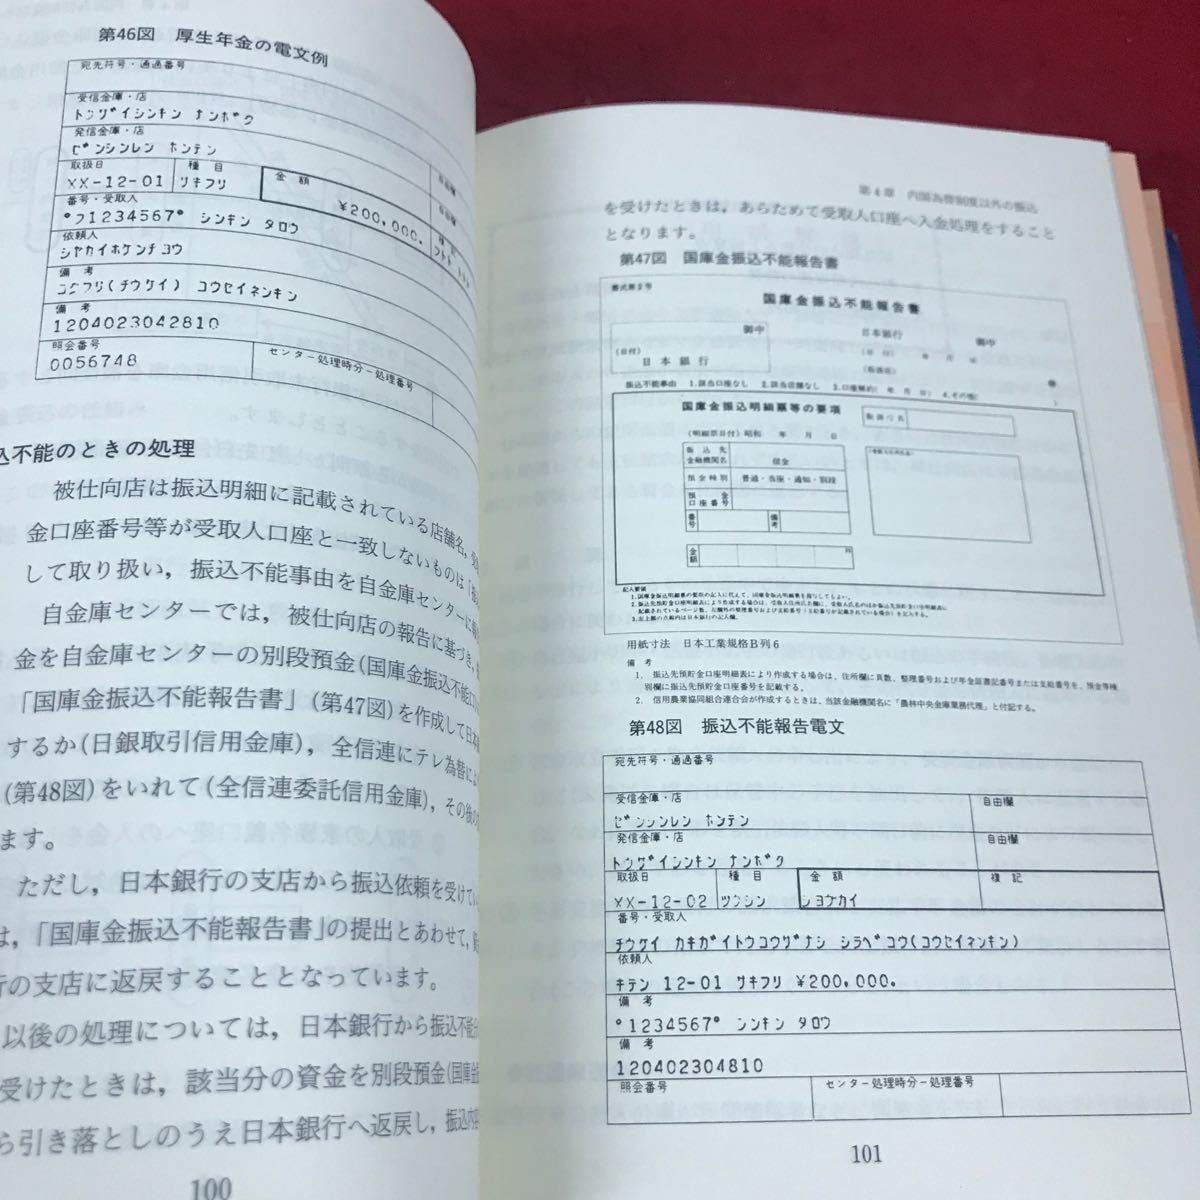 第46図　厚生年金の電文例
宛先符号・通過番号
受信金庫・店
トウザイシンキン ナンボク
発信金庫・店
ゼンシンレン ホンテン
取扱日　種目　金額
XX-12-01　サキフリ　¥200,000.
番号・受取人
°フ1234567° シンキン タロウ
依頼人
シヤカイホケンチヨウ
備考
コクフリ(チウケイ) コウセイネンキン
備考
1204023042810
照会番号　センター処理時分－処理番号
0056748
込不能のときの処理
被仕向店は振込明細に記載されている店舗名，
金口座番号等が受取人口座と一致しないものは
して取り扱い，振込不能事由を自金庫センターに
自金庫センターでは，被仕向店の報告に基づき，
金を自金庫センターの別段預金(国庫金振込不能
「国庫金振込不能報告書」(第47図)を作成して日本
するか(日銀取引信用金庫)，全信連にテレ為替に
(第48図)をいれて(全信連委託信用金庫)，その後
ます。
ただし，日本銀行の支店から振込依頼を受けて
は，「国庫金振込不能報告書」の提出とあわせて，
行の支店に返戻することとなっています。
以後の処理については，日本銀行から振込不能
受けたときは，該当分の資金を別段預金(国庫金
ら引き落としのうえ日本銀行へ返戻し，振込
100
第4章　内国為替制度以外の振込
を受けたときは，あらためて受取人口座へ入金処理をすること
となります。
第47図　国庫金振込不能報告書
書式第9号
国庫金振込不能報告書
御中　日本銀行　御中
(日付)　(日付)　年　月　日
日本銀行　(取扱店)
振込不能事由　1.該当口座なし　2.該当店舗なし　3.口座解約(　年　月　日)　4.その他(　)
国庫金振込明細票等の要項　取扱庁名
(明細票日付)昭和　年　月　日
振込先
金融機関名　信金
預金種別　普通・当座・通知・別段
預金
口座番号
番号　備考
金額　円
記入要領
1.国庫金振込明細票の要項の記入に代えて，国庫金振込明細票を複写してもよい。
用紙寸法　日本工業規格B列6
備考
1.　振込先預貯金口座明細表により作成する場合は，住所欄に頁数，整理番号および年金証書記号番号または支給番号を，預金等種
別欄に振込先預貯金口座番号を記載する。
2.　信用農業協同組合連合会が作成するときは，当該金融機関名に「農林中央金庫業務代理」と付記する。
第48図　振込不能報告電文
宛先符号・通過番号
受信金庫・店　自由欄
ゼンシンレン ホンテン
発信金庫・店　自由欄
トウザイシンキン ナンボク
取扱日　種目　金額　複記
XX-12-02　ツウシン　シヨウカイ
番号・受取人
チウケイ カキガイトウコウザナシ シラベコウ(コウセイネンキン)
依頼人
キテン 12-01 サキフリ ¥200,000.
備考
°1234567° シンキン タロウ
備考
120402304810
照会番号　センター処理時分－処理番号
101